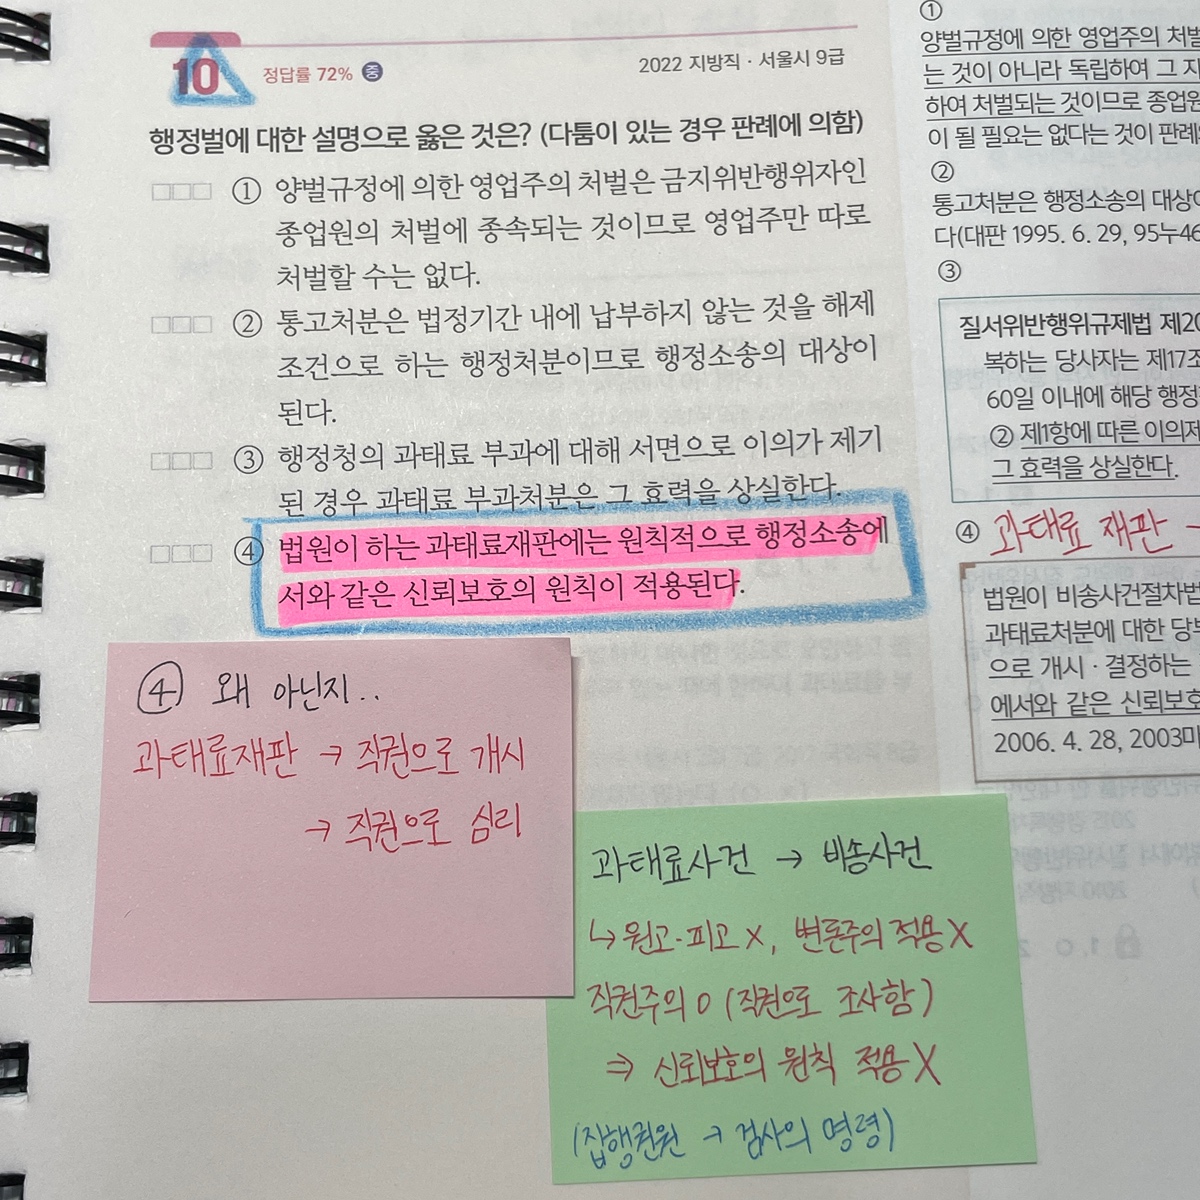 10 정답률 72% 중
2022 지방직 · 서울시 9급
행정벌에 대한 설명으로 옳은 것은? (다툼이 있는 경우 판례에 의함)
□□□ ① 양벌규정에 의한 영업주의 처벌은 금지위반행위자인
종업원의 처벌에 종속되는 것이므로 영업주만 따로
처벌할 수는 없다.
□□□ ② 통고처분은 법정기간 내에 납부하지 않는 것을 해제
조건으로 하는 행정처분이므로 행정소송의 대상이
된다.
□□□ ③ 행정청의 과태료 부과에 대해 서면으로 이의가 제기
된 경우 과태료 부과처분은 그 효력을 상실한다.
□□□ ④ 법원이 하는 과태료재판에는 원칙적으로 행정소송에
서와 같은 신뢰보호의 원칙이 적용된다.
④ 왜 아닌지..
과태료재판 → 직권으로 개시
→ 직권으로 심리
과태료사건 → 비송사건
↳ 원고·피고 X, 변론주의 적용 X
직권주의 O (직권으로 조사함)
⇒ 신뢰보호의 원칙 적용 X
(집행권원 → 검사의 명령)
①
양벌규정에 의한 영업주의 처벌
는 것이 아니라 독립하여 그 자
하여 처벌되는 것이므로 종업원
이 될 필요는 없다는 것이 판례
②
통고처분은 행정소송의 대상이
다(대판 1995. 6. 29, 95누46
③
질서위반행위규제법 제20
복하는 당사자는 제17조
60일 이내에 해당 행정
② 제1항에 따른 이의제
그 효력을 상실한다.
④ 과태료 재판 →
법원이 비송사건절차법
과태료처분에 대한 당부
으로 개시 · 결정하는
에서와 같은 신뢰보호
2006. 4. 28, 2003마